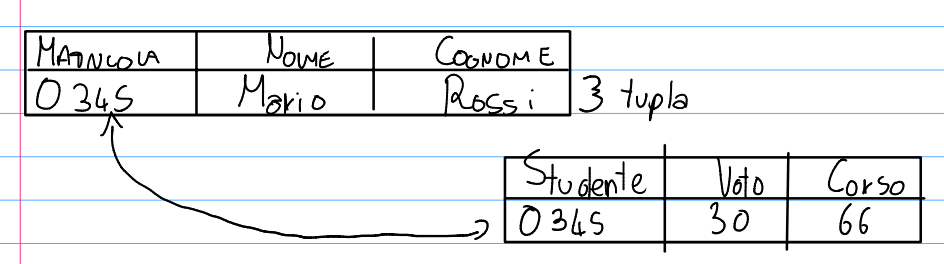 MATRICOLA NOME COGNOME
0345 Mario Rossi 3 tupla
Studente Voto Corso
0345 30 66